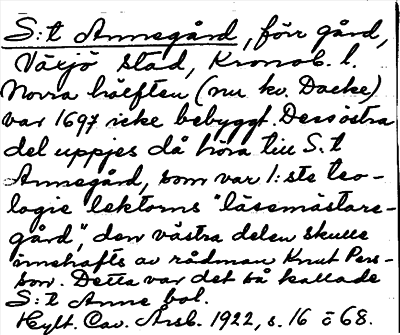 S:t Annegård, förr gård,
Växjö stad, Kronob. l.
Norra hälften (nu kv. Dacke)
var 1697 icke bebyggt. Dess östra
del uppges då höra till S:t
Annegård, som var 1:ste teo-
logie lektorns "läsemästare-
gård", den västra delen skulle
innehafts av rådman Knut Pers-
son. Detta var det så kallade
S:t Anne bol.
Hylt. Cav. Årsb. 1922, s. 16 o 68.